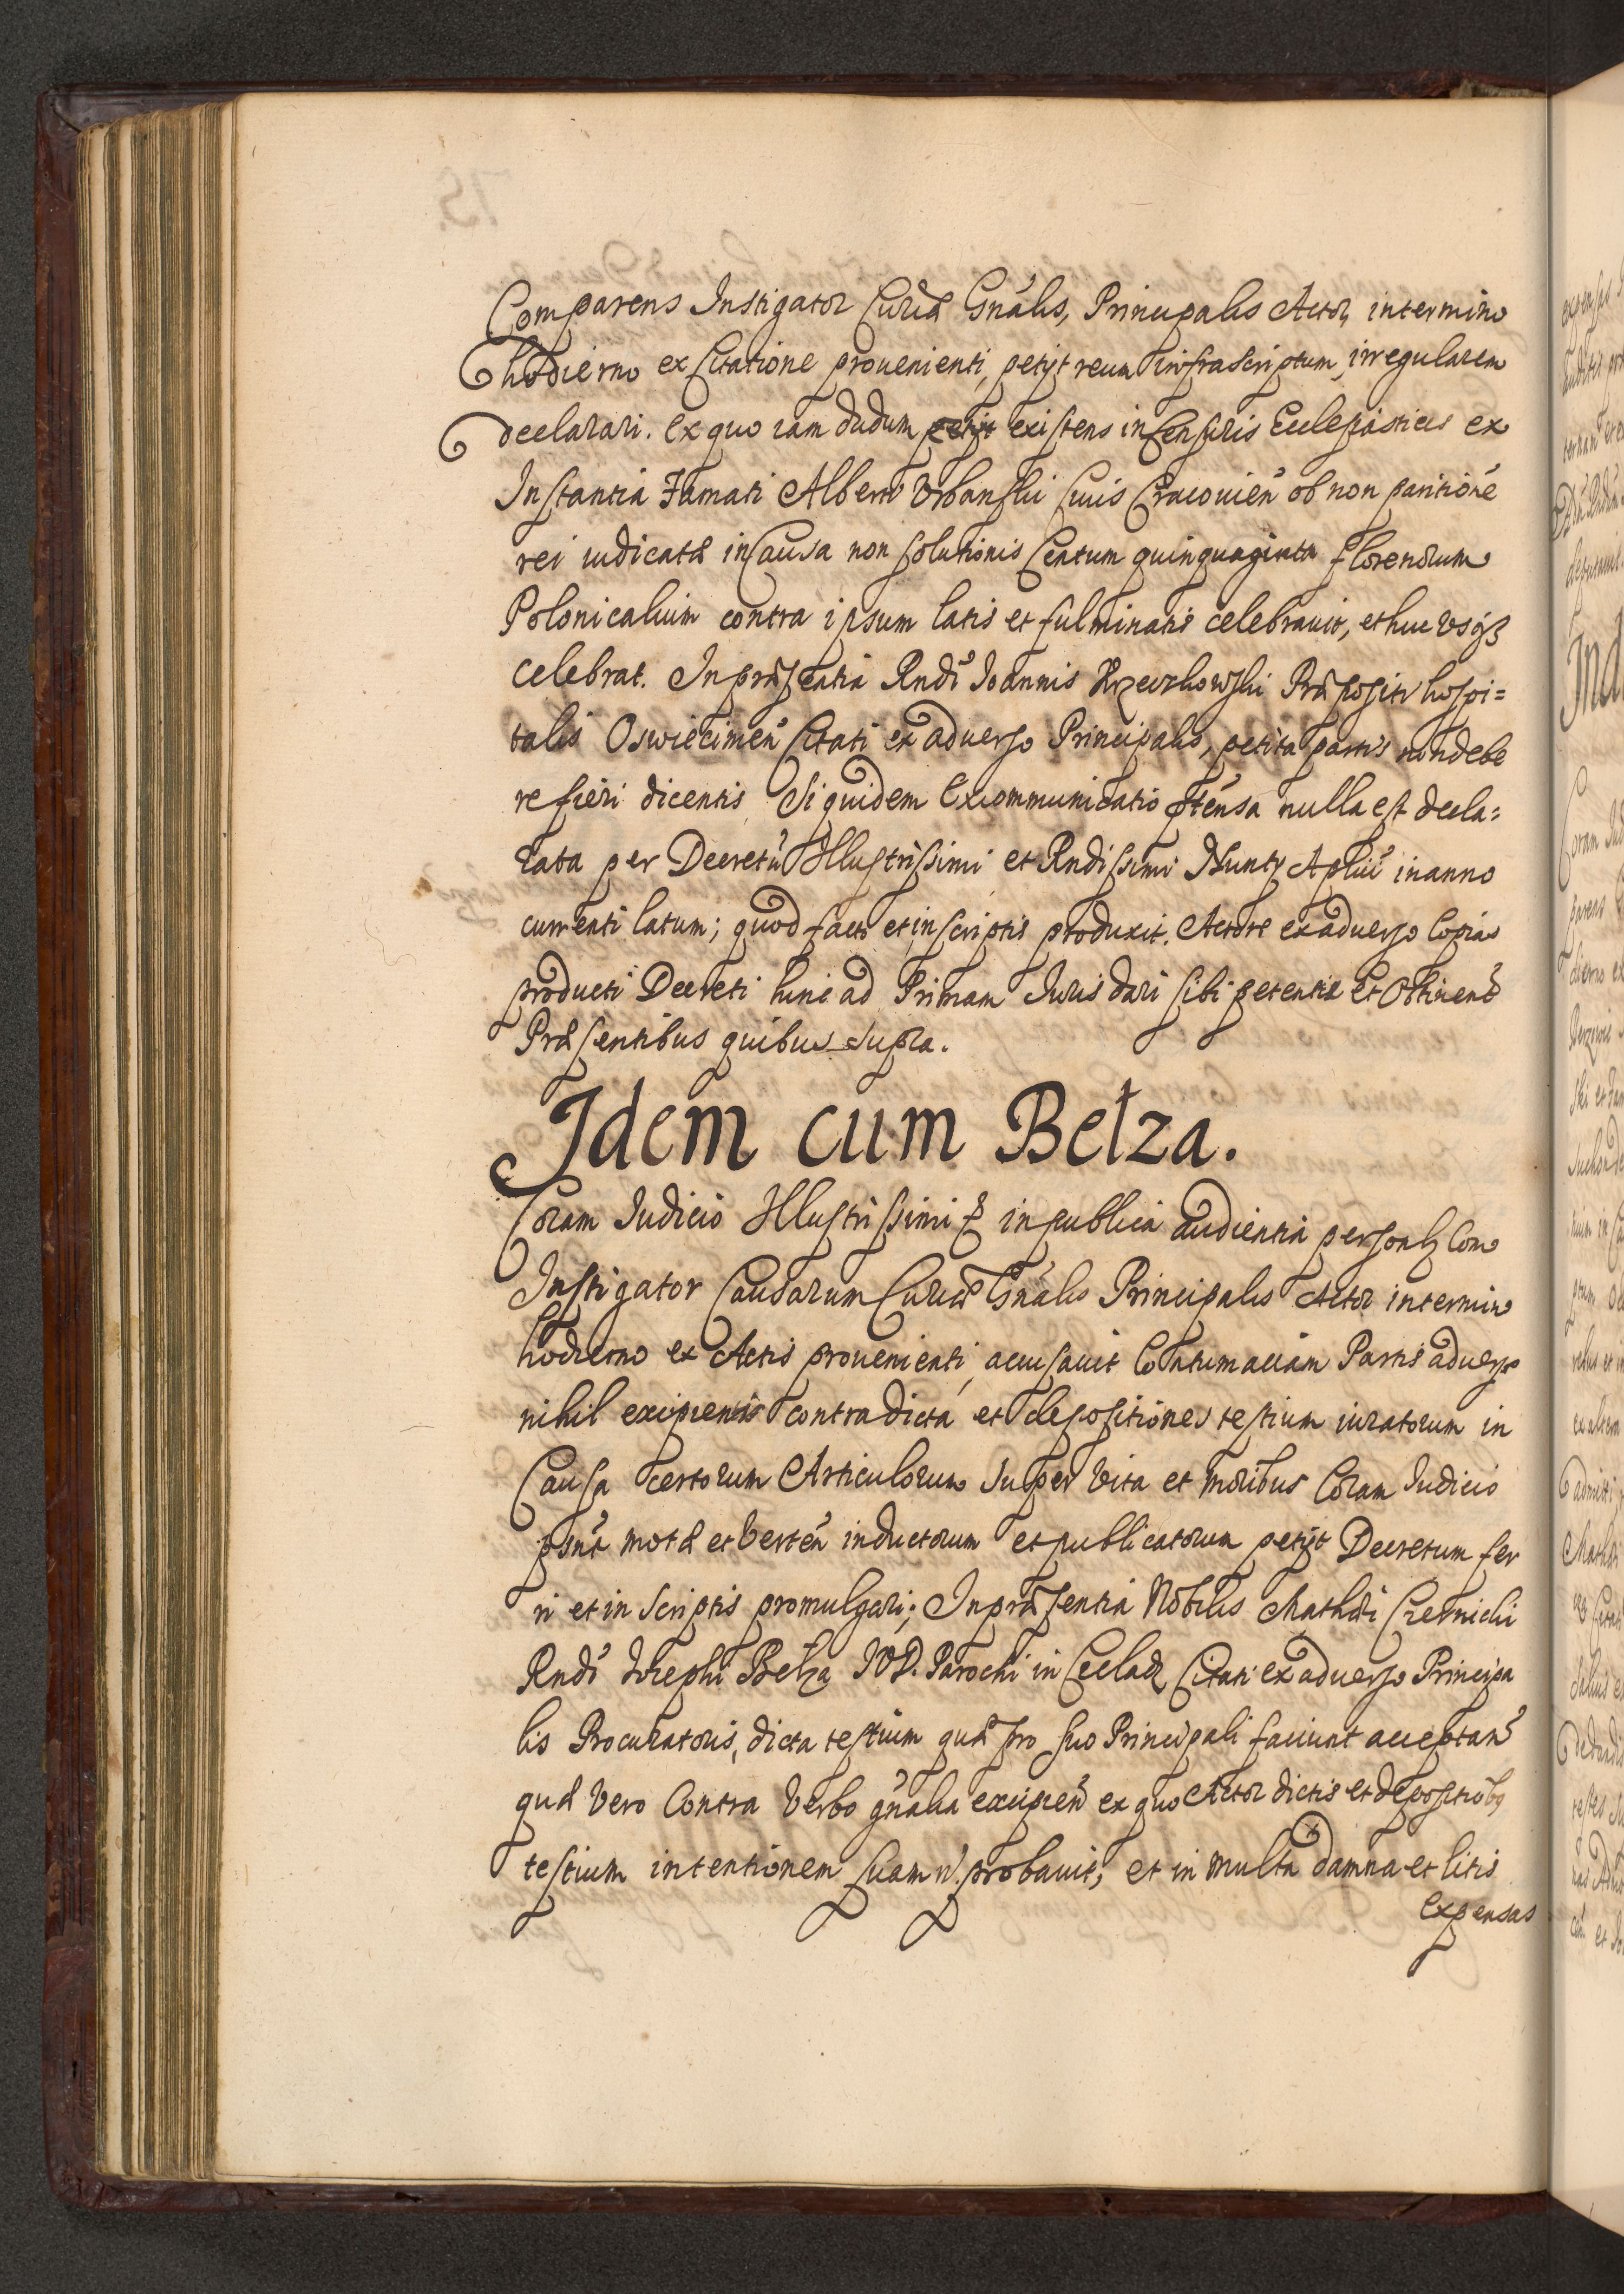 Comparens Instigator Curiæ Gnális, Principalis Actor, intermino
hodierno ex Citatione prouenienti, petijt reum infrascriptum irregularem
declarari. Ex quo iam dudum existens in Censuris Ecclesiasticis ex
Instantia Famati Alberti Vrbanski Ciuis Cracouien̄ ob non paritionē
rei iudicatæ in Causa non solutionis Centum quinquaginta florenorum
Polonicalium contra ipsum latis et fulminatis celebrauit, et huc vsqȝ
celebrat. In præsentia Rndi Ioannis Præpositi hospi=
talis Oswiecimen̄ Citati ex aduerso Principalis, petita partis non debe
re fieri dicentis, Siquidem Excommunicatio ptēnsa nulla est decla=
rata per Decretū Illustrissimi et Rndissimi Nuntij Aplici in anno
currenti latum; quod facto et in scriptis produxit. Actore ex aduerso Copias
producti Decreti hinc ad Primam Iuris dari sibi petente et Obtinen̄
Præsentibus quibus supra.
Idem cum Betza.
Coram Iudicio Illustrissimi in publica audientia personlȝ Com
Instigator Causarum Curiæ Gnális Principalis Actor intermino
hodierno ex Actis prouenienti, accusauit Contumaciam Partis aduersæ
nihil excipientis contra dicta et depositiones testium iuratorum in
Causa certorum Articulorum super vita et moribus Coram Iudicio
psn̄t motæ et verten̄ inductorum et publicatorum petijt Decretum fer
ri et in scriptis promulgari; In præsentia Nobilis Mathæi Czernicki
Rndi Iosephi Betza IVD. Parochi in Citati ex aduerso Principa
lis Procuratoris, dicta testium quæ pro suo Principali faciunt acceptan̄
quæ vero Contra Verbo gn̄alia excipien̄ ex quo Actor dictis et depositiōbꝰ
testium intentionem suam n. probauit, et in multa damna et litis
expensas